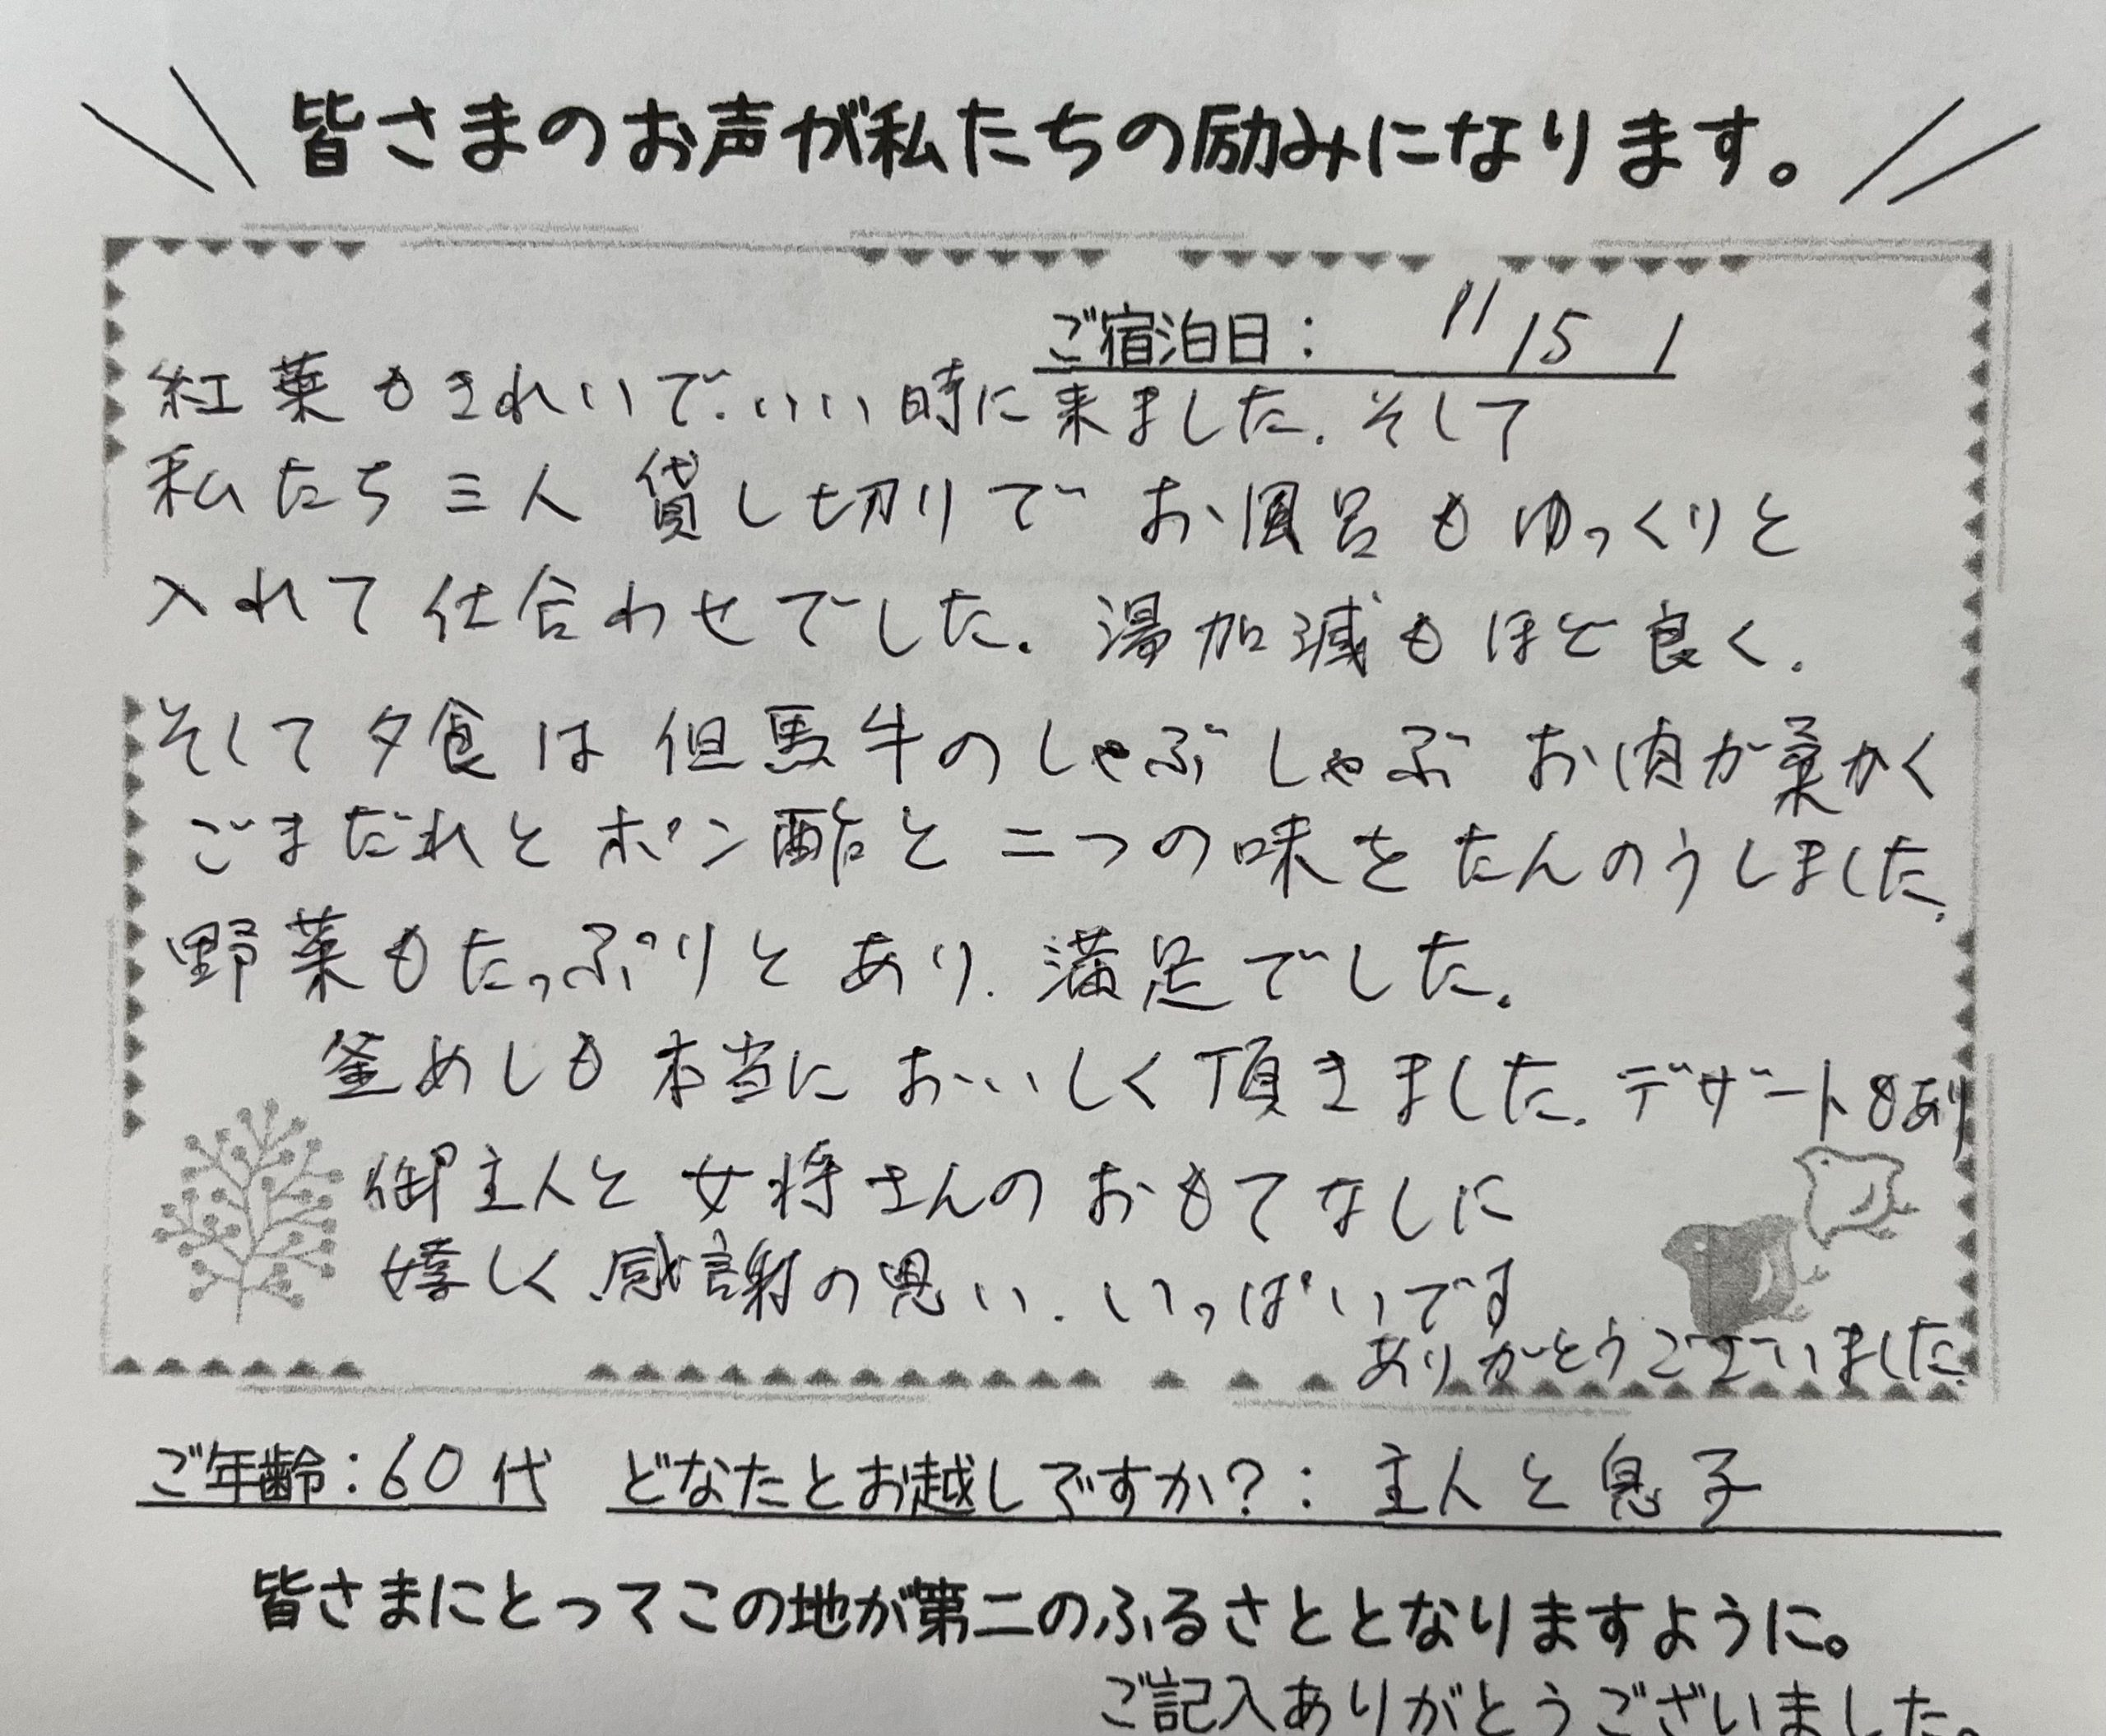 皆さまのお声が私たちの励みになります。
ご宿泊日： 11/15 /
紅葉もきれいで、いい時に来ました。そして
私たち三人貸し切りでお風呂もゆっくりと
入れて仕合わせでした。湯加減もほど良く、
そして夕食は但馬牛のしゃぶしゃぶお肉が柔かく
ごまだれとポン酢と二つの味をたんのうしました。
野菜もたっぷりとあり、満足でした。
釜めしも本当においしく頂きました。デザートもあり
御主人と女将さんのおもてなしに
嬉しく感謝の思い、いっぱいです
ありがとうございました。
ご年齢：60代 どなたとお越しですか？：主人と息子
皆さまにとってこの地が第二のふるさととなりますように。
ご記入ありがとうございました。